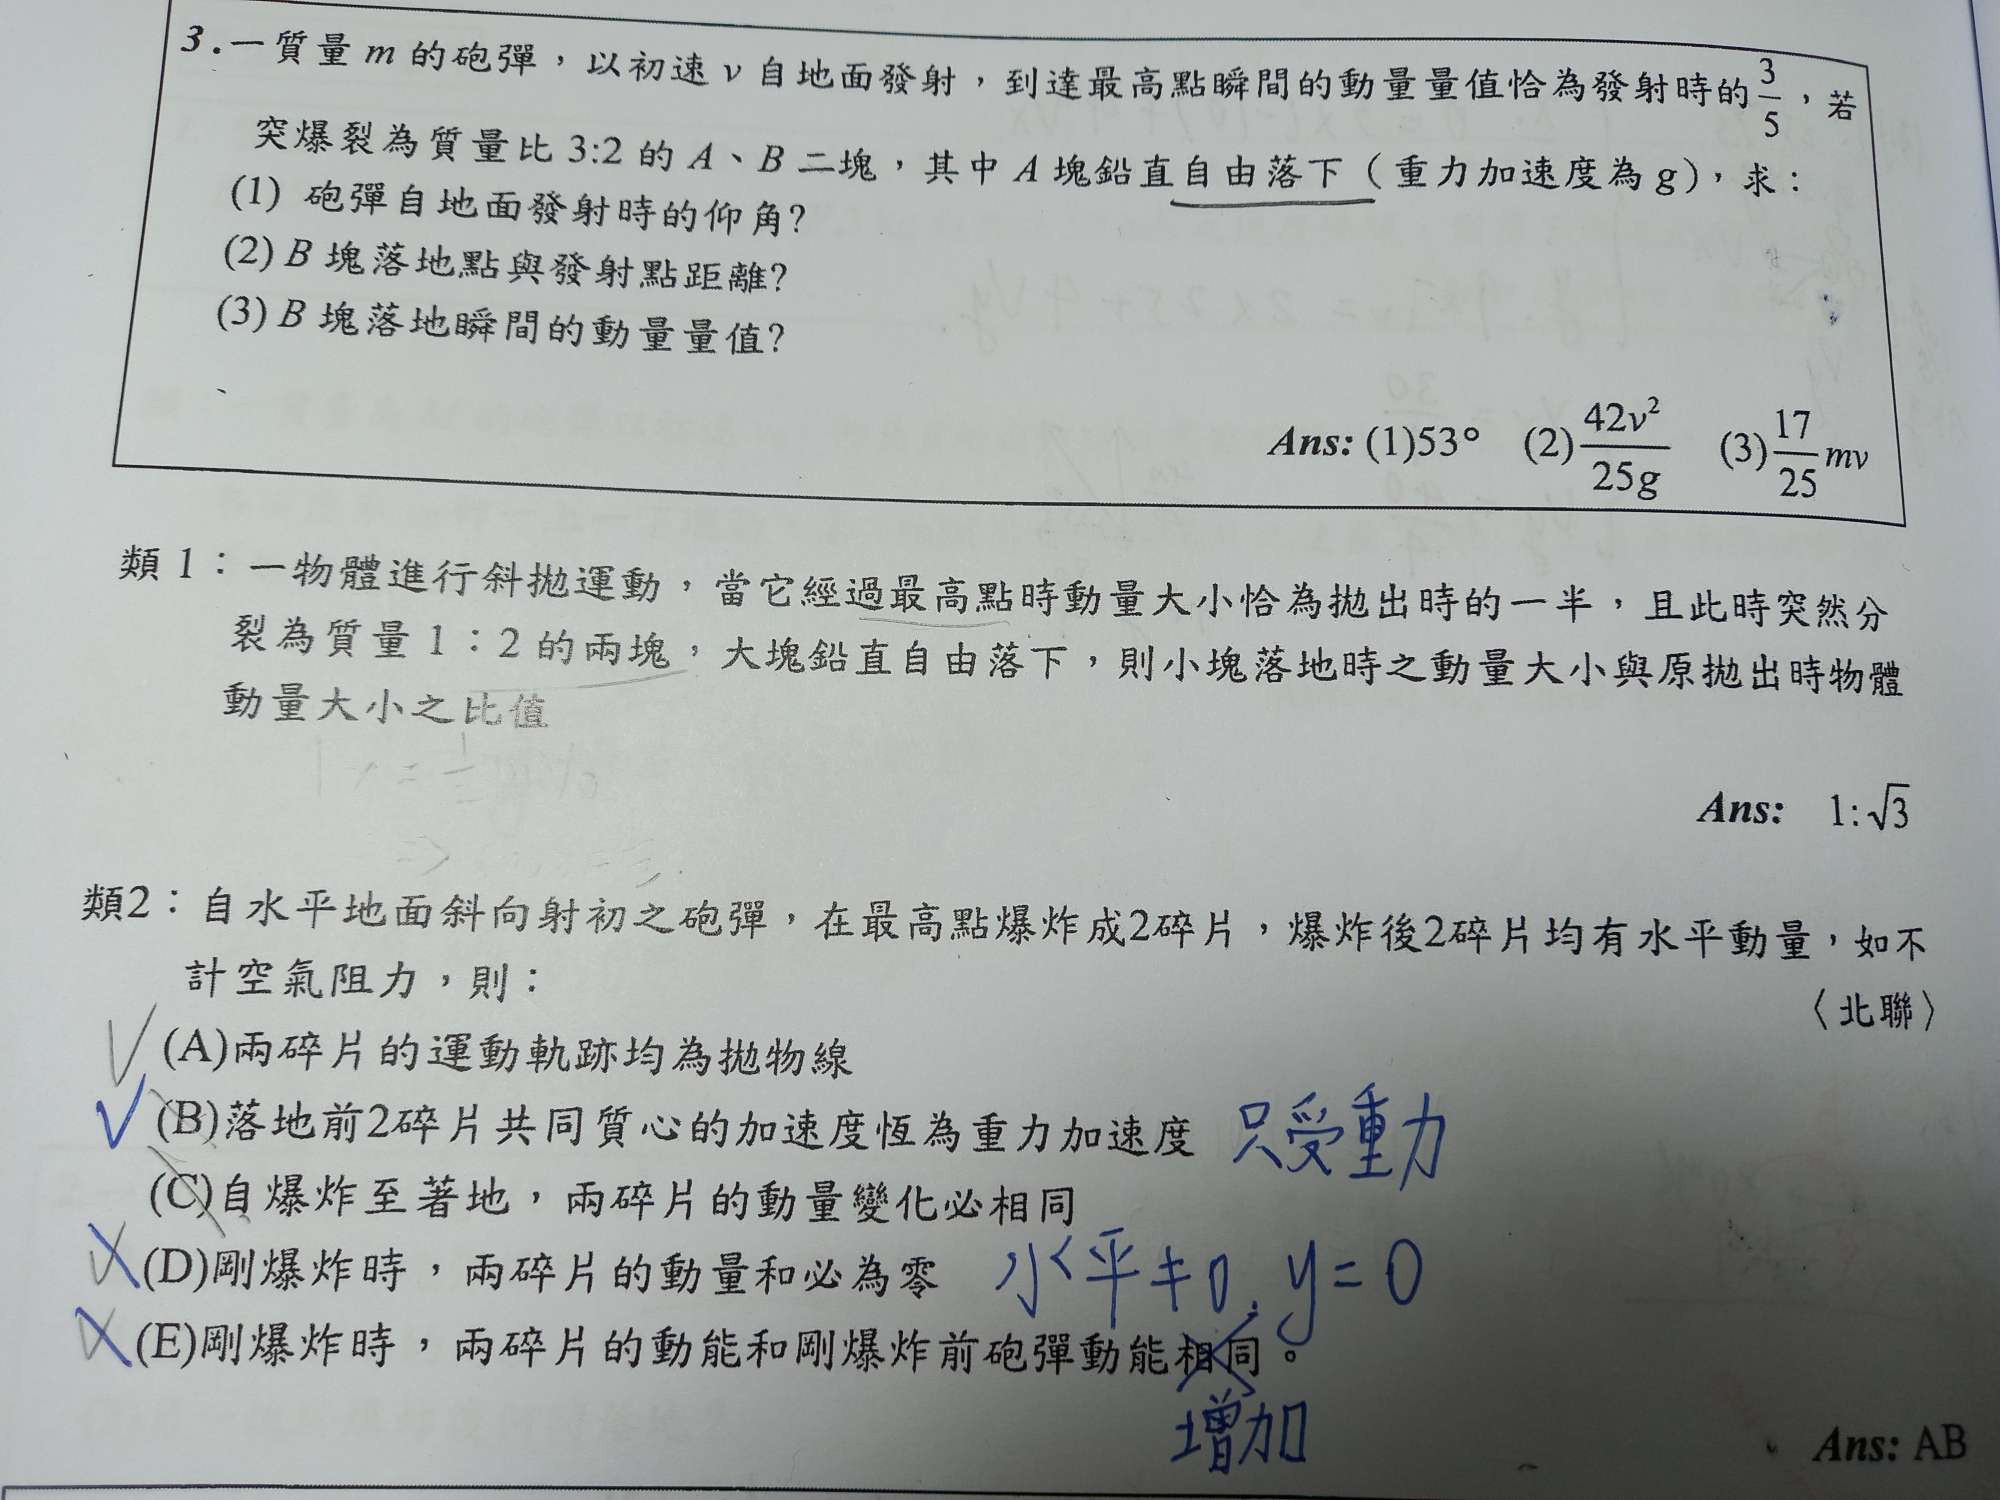 3.一質量 m 的砲彈，以初速 v 自地面發射，到達最高點瞬間的動量量值恰為發射時的 3/5，若
突爆裂為質量比 3:2 的 A、B 二塊，其中 A 塊鉛直自由落下（重力加速度為 g），求：
(1) 砲彈自地面發射時的仰角?
(2) B 塊落地點與發射點距離?
(3) B 塊落地瞬間的動量量值?
Ans: (1)53° (2) 42v²/25g (3) 17/25 mv
類 1：一物體進行斜拋運動，當它經過最高點時動量大小恰為拋出時的一半，且此時突然分
裂為質量 1：2 的兩塊，大塊鉛直自由落下，則小塊落地時之動量大小與原拋出時物體
動量大小之比值
Ans: 1:√3
類2：自水平地面斜向射初之砲彈，在最高點爆炸成2碎片，爆炸後2碎片均有水平動量，如不
計空氣阻力，則：
〈北聯〉
(A)兩碎片的運動軌跡均為拋物線
(B)落地前2碎片共同質心的加速度恆為重力加速度 只受重力
(C)自爆炸至著地，兩碎片的動量變化必相同
(D)剛爆炸時，兩碎片的動量和必為零 水平≠0, y=0
(E)剛爆炸時，兩碎片的動能和剛爆炸前砲彈動能相同。
增加
Ans: AB